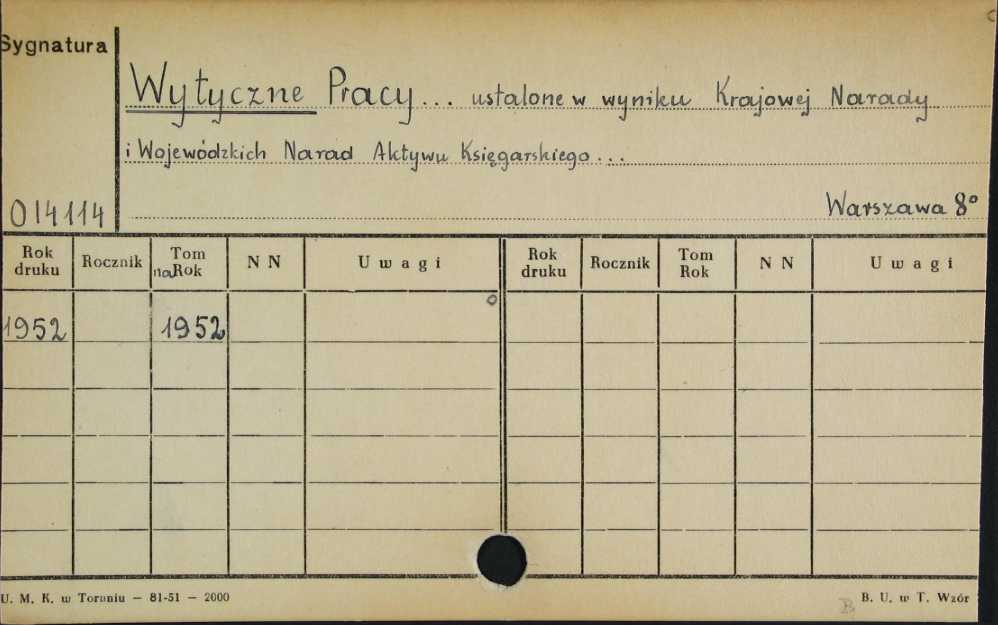 Sygnatura
Wytyczne Pracy... ustalone w wyniku Krajowej Narady
i Wojewódzkich Narad Aktywu Księgarskiego...
014114
Warszawa 8°
Rok druku Rocznik Tom na Rok N N Uwagi Rok druku Rocznik Tom Rok N N Uwagi
1952 1952
U. M. K. w Toruniu — 81-51 — 2000
B
B. U. w T. Wzór